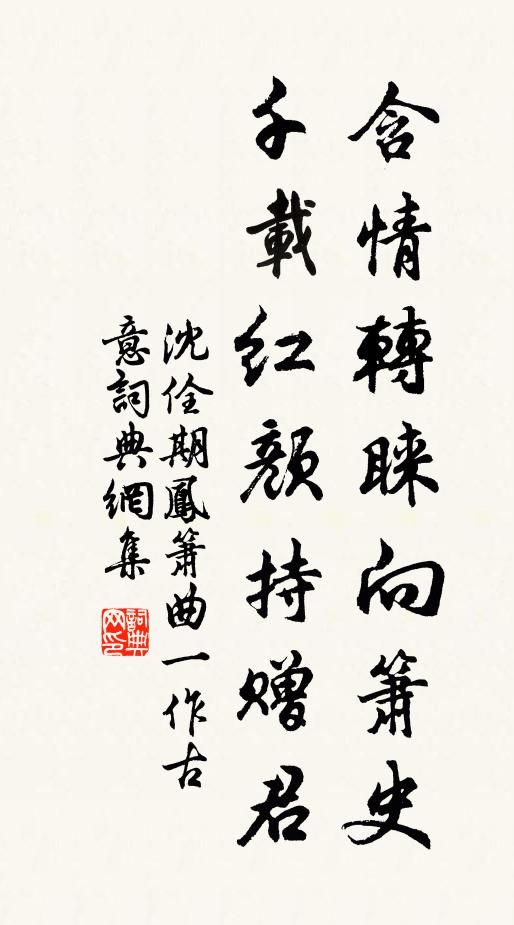 含情轉睐向簫史
千載紅顏持贈君
沈佺期鳳簫曲一作古
意詞典網集
詞典
网印